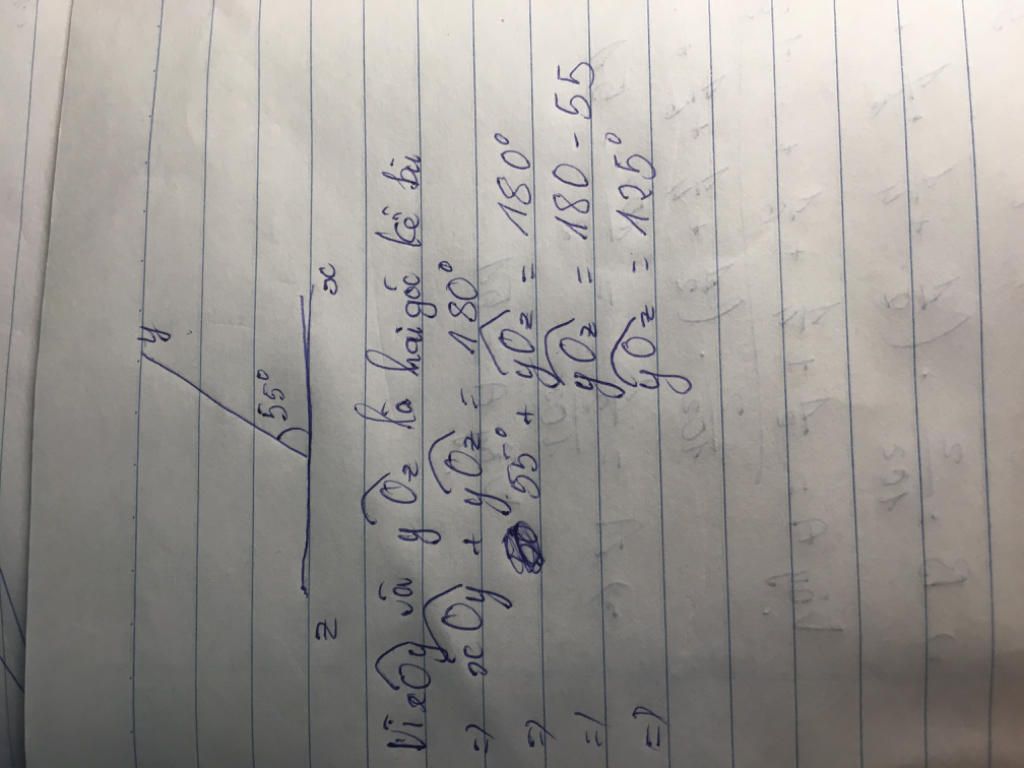 y
55°
z x
Vì xOy và yOz là hai góc kề bù
=> xOy + yOz = 180°
=> 55° + yOz = 180°
=> yOz = 180 - 55
=> yOz = 125°